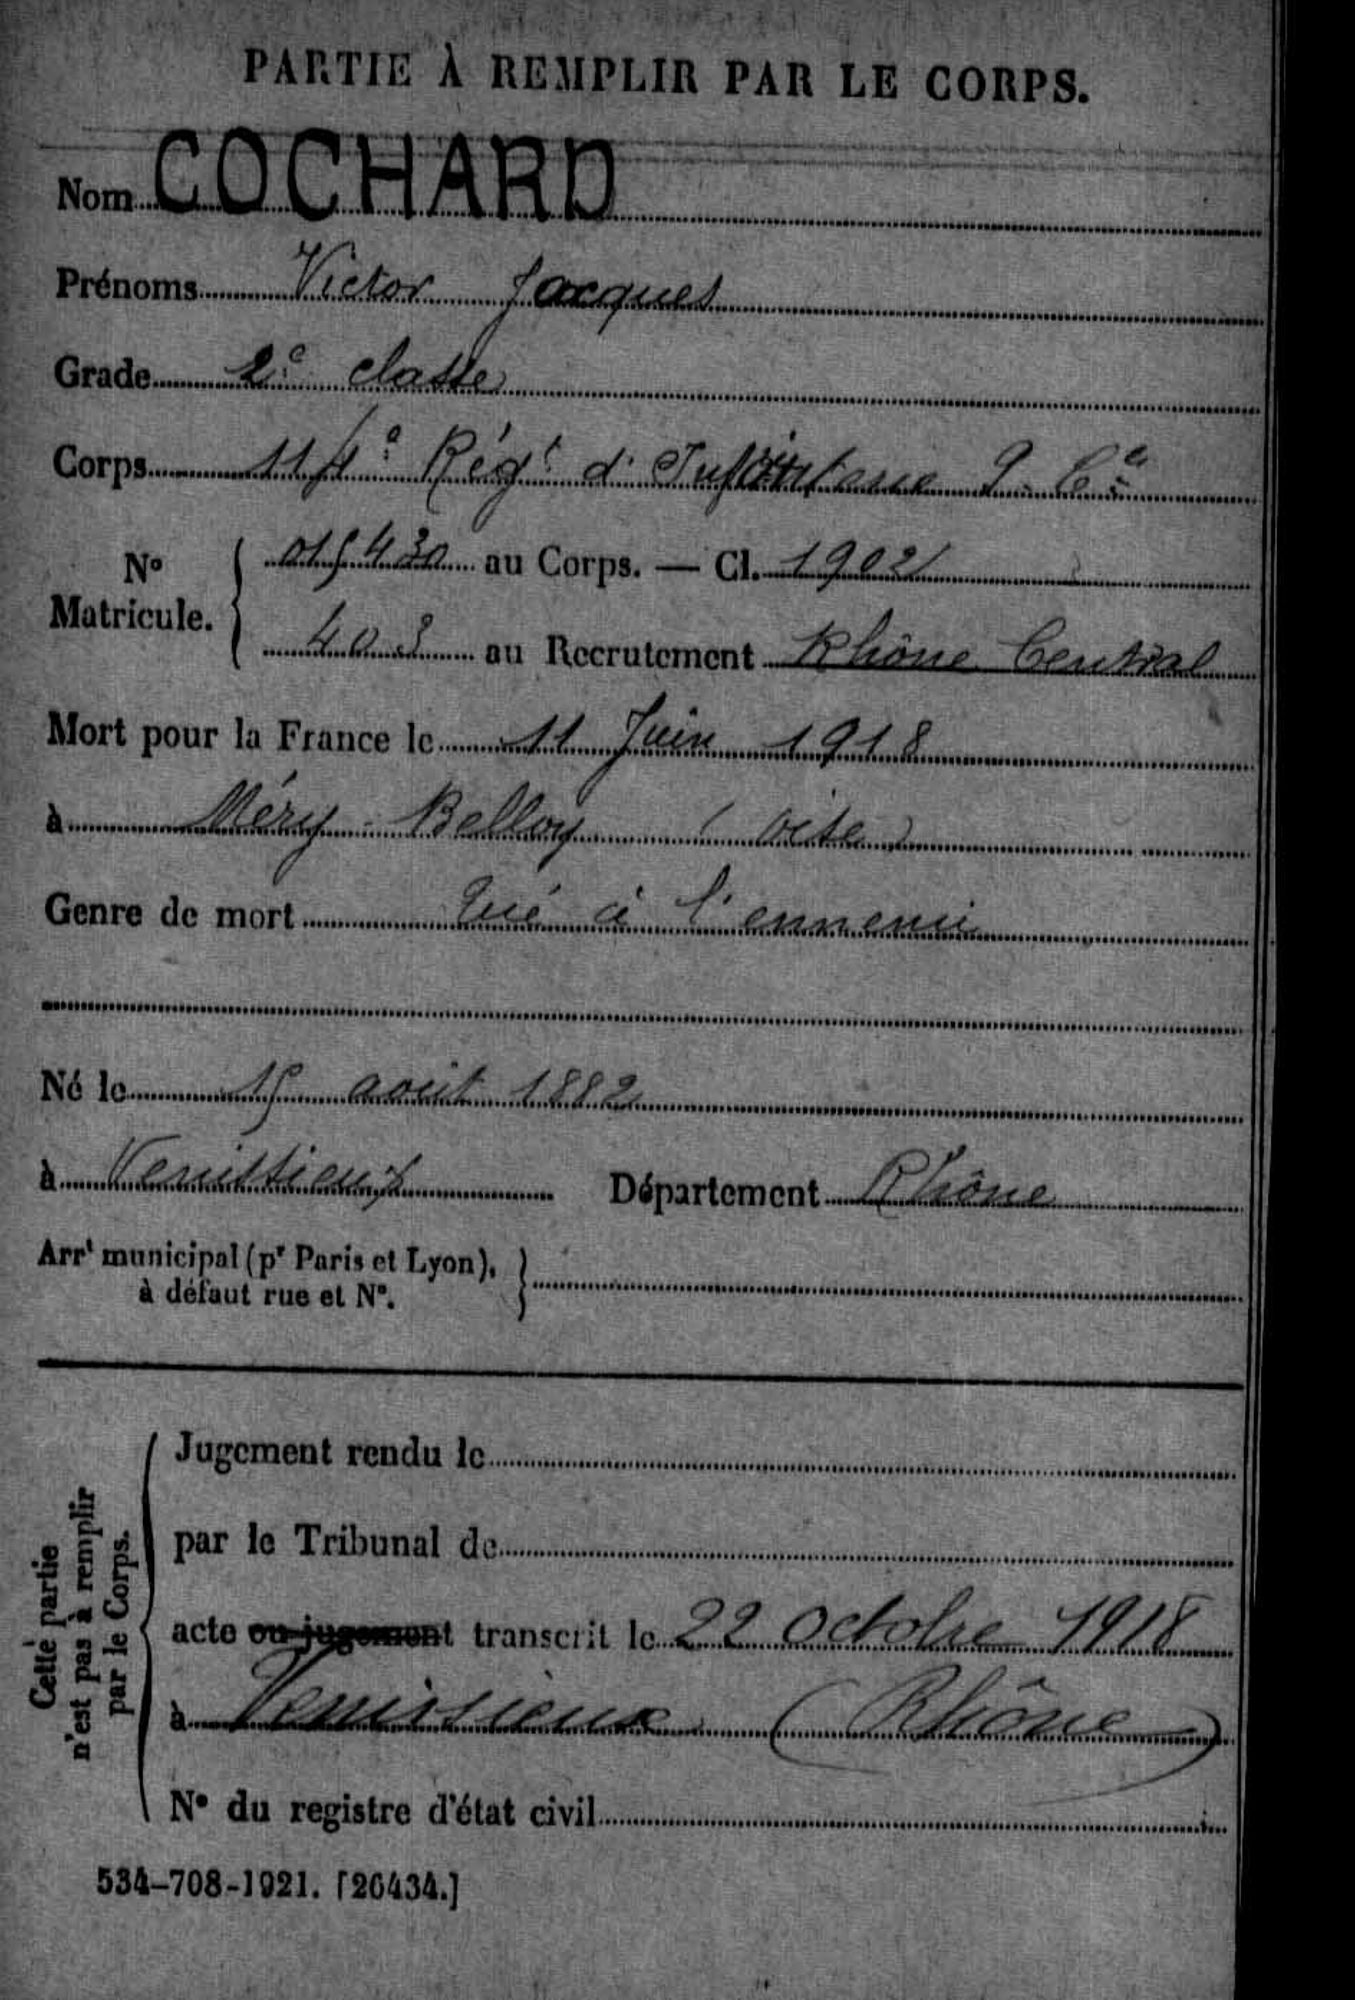 PARTIE À REMPLIR PAR LE CORPS.
Nom COCHARD
Prénoms Victor Jacques
Grade 2e classe
Corps 114e Régt d'Infanterie 9e Cie
No Matricule. 015430 au Corps. — Cl. 1902
403 au Recrutement Rhône Central
Mort pour la France le 11 Juin 1918
à Méry-Belloy (Oise)
Genre de mort Tué à l'ennemi
Né le 15 août 1882
à Venissieux Département Rhône
Arrt municipal (pr Paris et Lyon),
à défaut rue et No.
Cette partie
n'est pas à remplir
par le Corps.
Jugement rendu le
par le Tribunal de
acte ou jugement transcrit le 22 octobre 1918
à Venissieux (Rhône)
No du registre d'état civil
534-708-1921. [26434.]